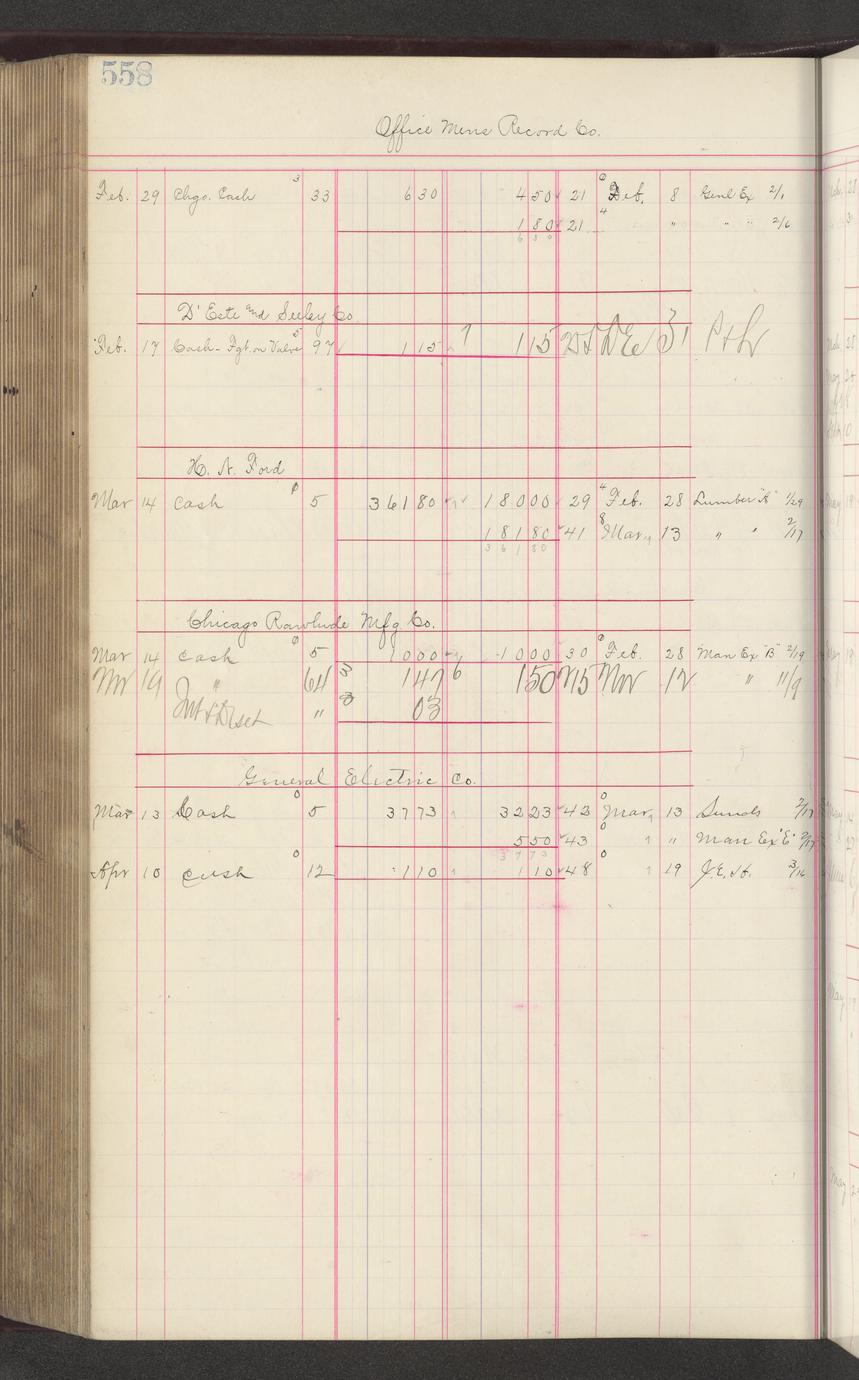 558
Office Mens Record Co.
Feb. 29 Chgo. Cash 3 33 6 30 4 50 21 6 Feb. 8 Genl Ex 2/1
1 80 21 4 " " " 2/6
6 30
D'Este and Seeley Co
Feb. 17 Cash - Fgt. on Valve 5 97 1 15 1 15 Dec 31 P & L
H. N. Ford
Mar 14 Cash 5 361 80 180 00 29 4 Feb. 28 Lumber "A" 1/29
181 80 41 8 Mar. 13 " " 2/17
361 80
Chicago Rawhide Mfg Co.
Mar 14 Cash 0 5 10 00 10 00 30 6 Feb. 28 Man Ex "B" 2/19
Nov 19 " 64 1 47 6 1 50 215 Nov 12 " 11/9
Int & Disct " 03
General Electric Co.
Mar 13 Cash 0 5 37 73 32 23 43 0 Mar, 13 Sunds 2/17
5 50 43 0 " " Man Ex "E" 2/17
37 73
Apr 10 Cash 0 12 1 10 1 10 48 0 " 19 J.E.H. 3/16